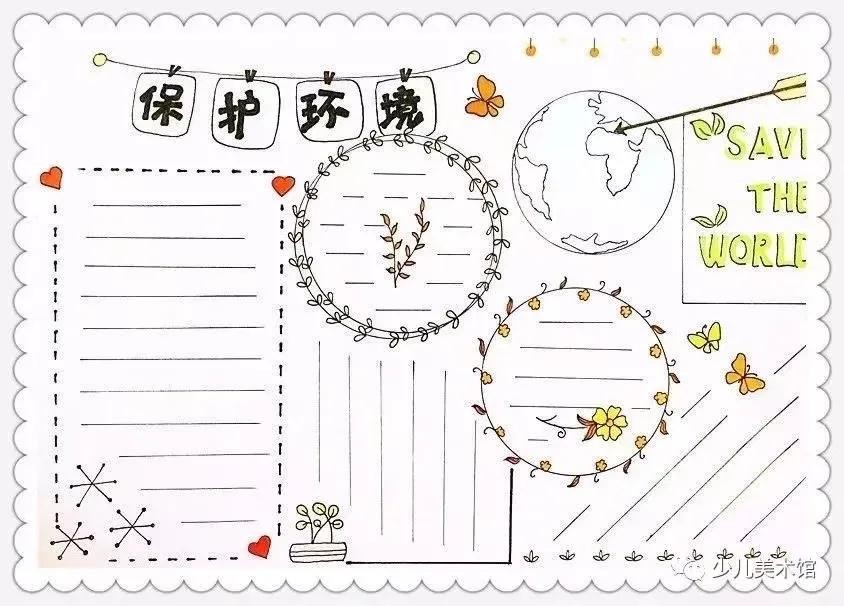 保护环境
SAVE
THE
WORLD
少儿美术馆